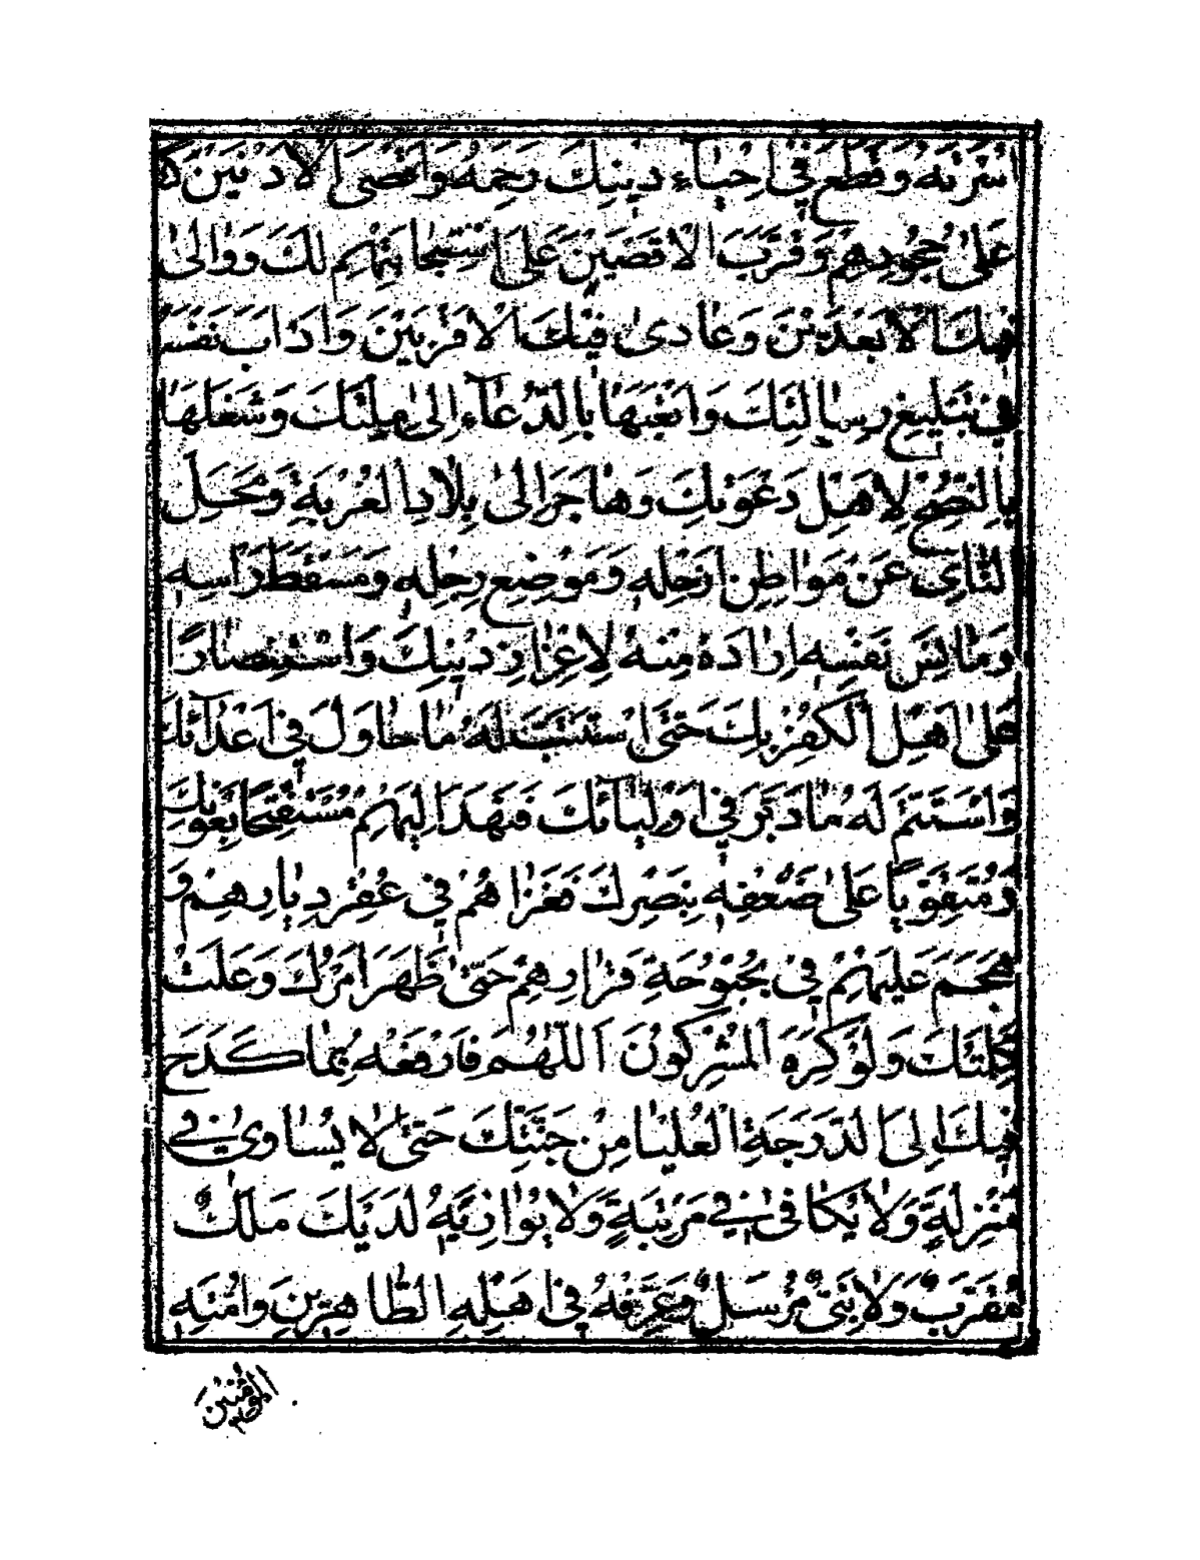 اُسْرَتَهُ وَقَطَعَ فِي اِحْيَاءِ دِينِكَ رَحِمَهُ وَاَقْصَى الْاَدْنَيْنَ
عَلىٰ جُحُودِهِمْ وَقَرَّبَ الْاَقْصَيْنَ عَلَى اسْتِجَابَتِهِمْ لَكَ وَوَالىٰ
فِيكَ الْاَبْعَدِينَ وَعَادىٰ فِيكَ الْاَقْرَبِينَ وَاَدْاَبَ نَفْسَهُ
فِي تَبْلِيغِ رِسَالَتِكَ وَاَتْعَبَهَا بِالدُّعَاءِ اِلىٰ مِلَّتِكَ وَشَغَلَهَا
بِالنُّصْحِ لِاَهْلِ دَعْوَتِكَ وَهَاجَرَ اِلىٰ بِلَادِ الْغُرْبَةِ وَمَحَلِّ
النَّأْيِ عَنْ مَوَاطِنِ رَحْلِهِ وَمَوْضِعِ رِجْلِهِ وَمَسْقَطِ رَأْسِهِ
وَمَأْنَسِ نَفْسِهِ اِرَادَةً مِنْهُ لِاِعْزَازِ دِينِكَ وَاسْتِنْصَارًا
عَلىٰ اَهْلِ الْكُفْرِ بِكَ حَتَّى اسْتَتَبَّ لَهُ مَا حَاوَلَ فِي اَعْدَآئِكَ
وَاسْتَتَمَّ لَهُ مَا دَبَّرَ فِي اَوْلِيَآئِكَ فَنَهَدَ اِلَيْهِمْ مُسْتَفْتِحًا بِعَوْنِكَ
وَمُتَقَوِّيًا عَلىٰ ضَعْفِهِ بِنَصْرِكَ فَغَزَاهُمْ فِي عُقْرِ دِيَارِهِمْ وَ
هَجَمَ عَلَيْهِمْ فِي بُحْبُوحَةِ قَرَارِهِمْ حَتّىٰ ظَهَرَ اَمْرُكَ وَعَلَتْ
كَلِمَتُكَ وَلَوْ كَرِهَ الْمُشْرِكُونَ اَللّٰهُمَّ فَارْفَعْهُ بِمَا كَدَحَ
فِيكَ اِلَى الدَّرَجَةِ الْعُلْيَا مِنْ جَنَّتِكَ حَتّىٰ لَا يُسَاوىٰ فِي
مَنْزِلَةٍ وَلَا يُكَافَىٰ فِي مَرْتَبَةٍ وَلَا يُوَازِيَهُ لَدَيْكَ مَلَكٌ
مُقَرَّبٌ وَلَا نَبِيٌّ مُرْسَلٌ وَعَرِّفْهُ فِي اَهْلِهِ الطَّاهِرِينَ وَاُمَّتِهِ
الْمُؤْمِنِينَ